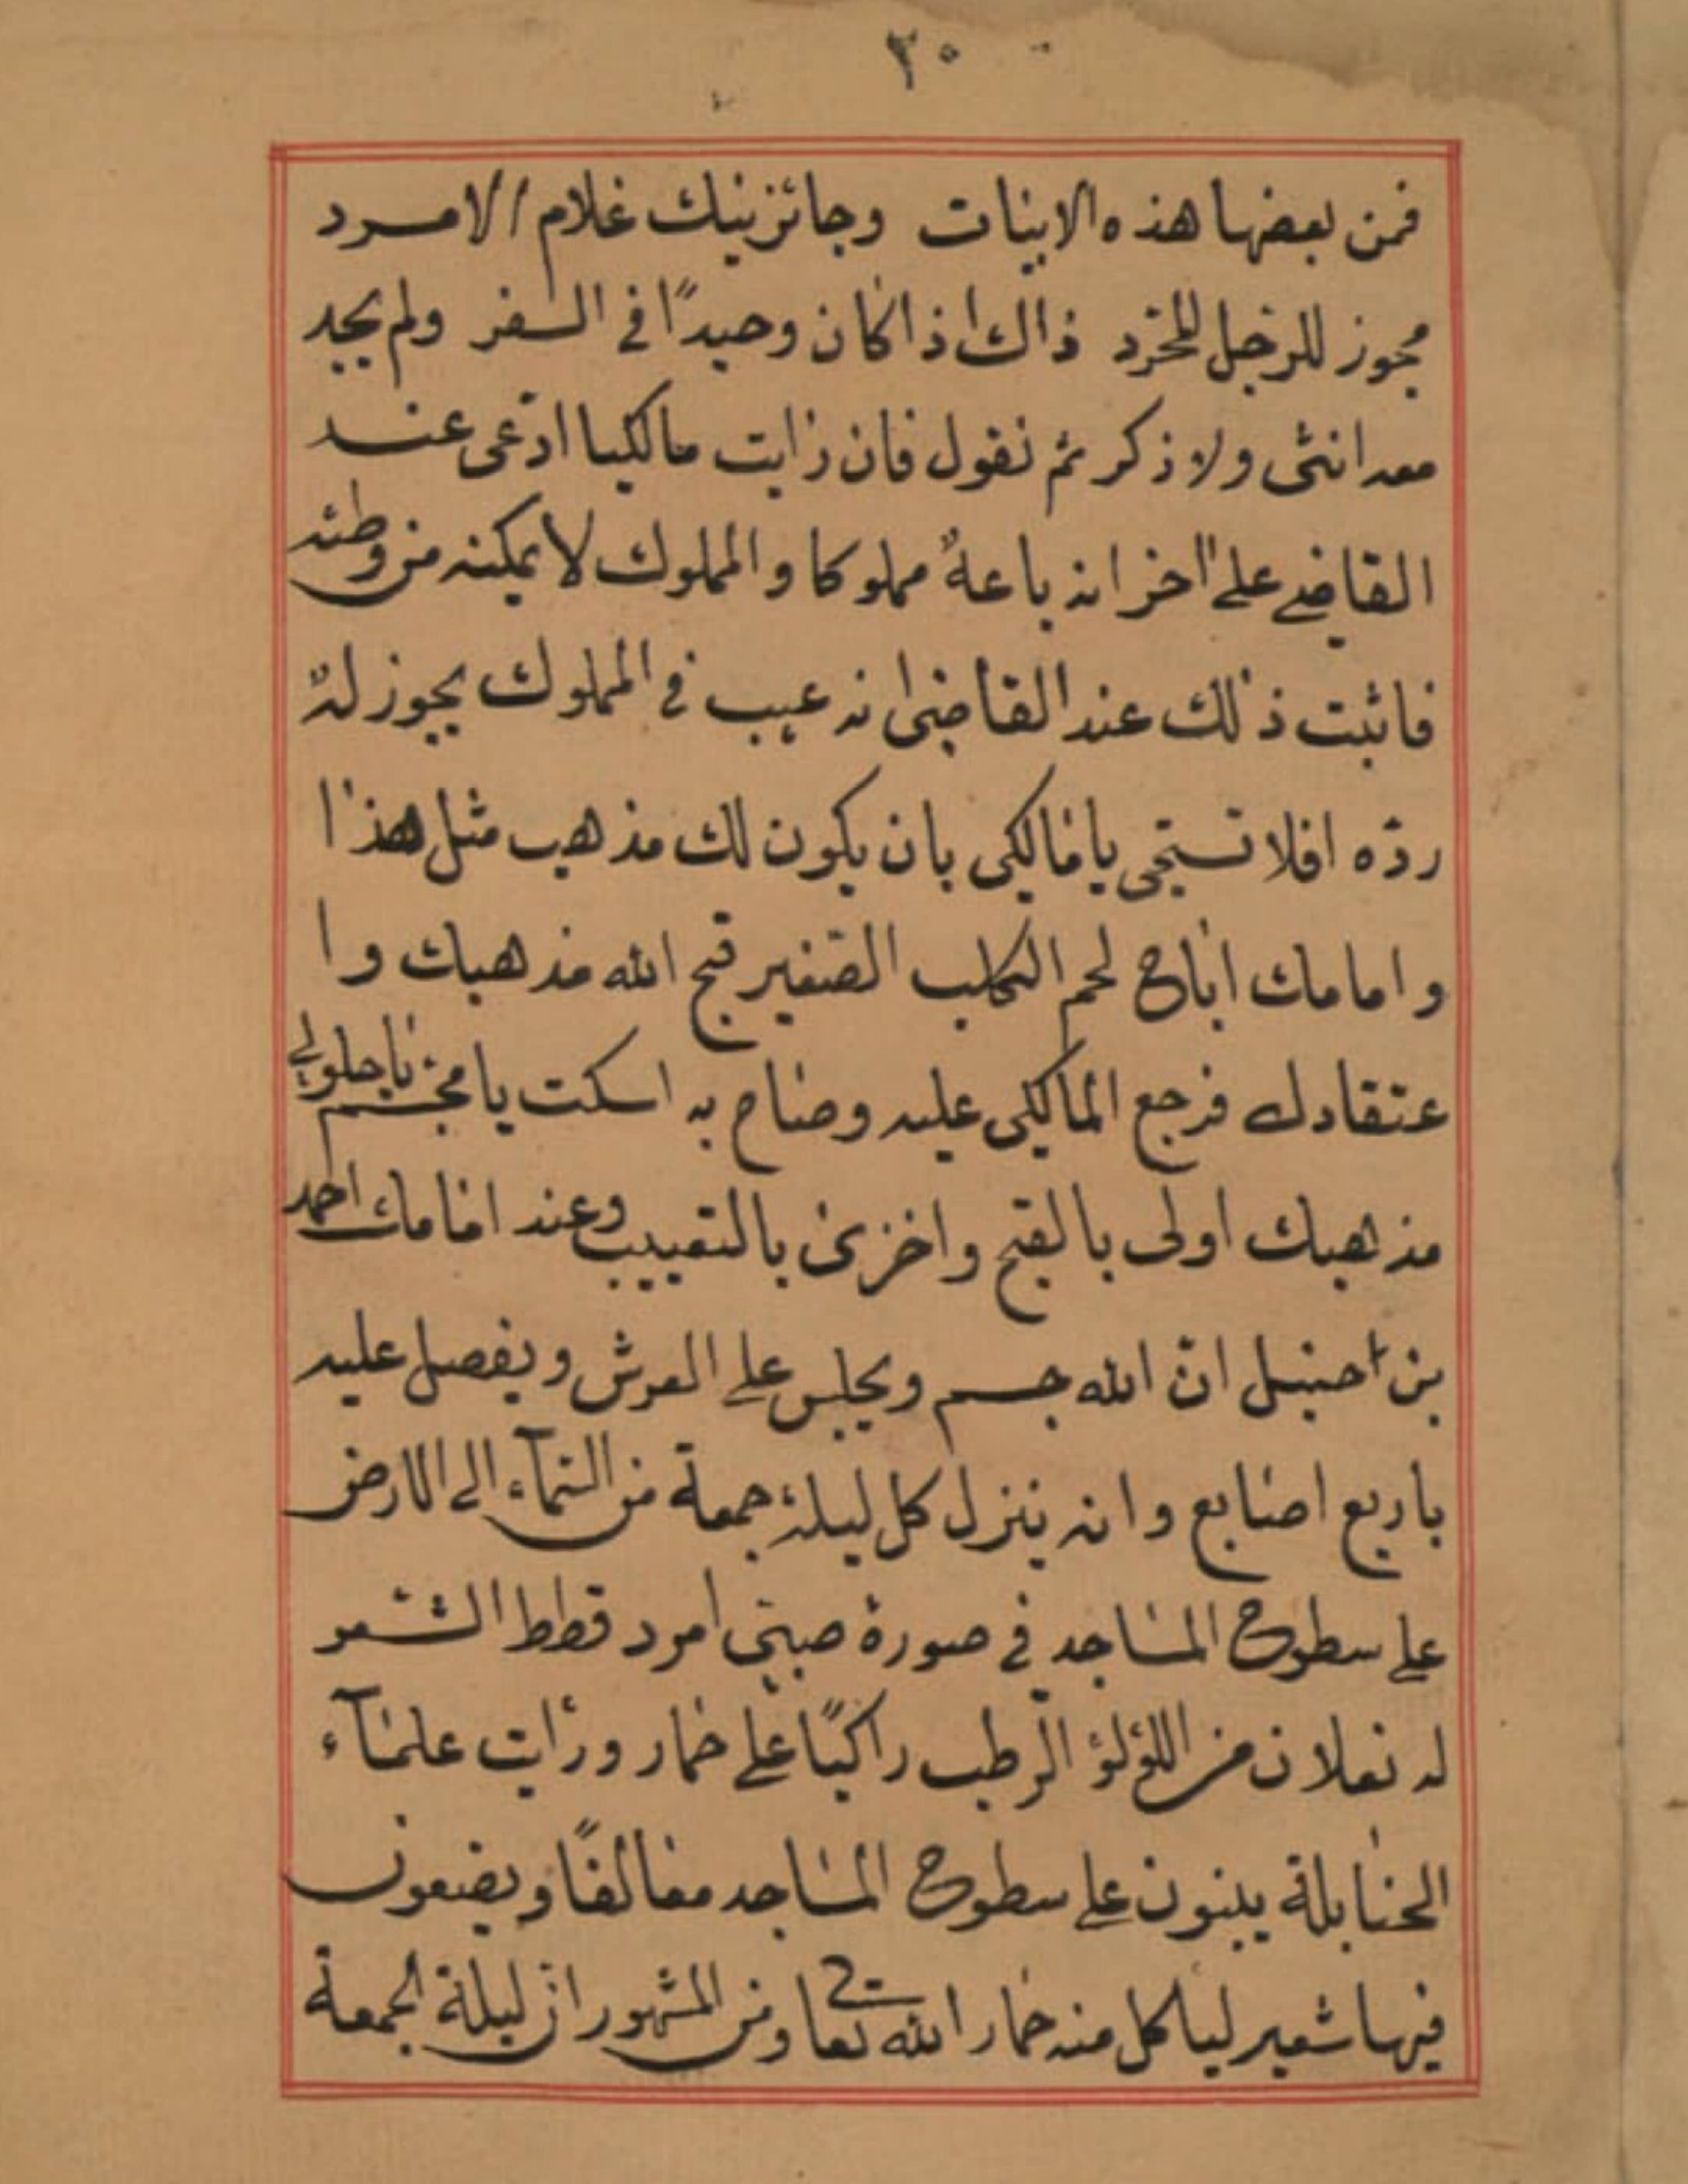 ٣٠
فمن بعضها هذه الابيات وجائز نيك غلام الامرد
مجوز للرجل المخرد ذاك اذا كان وحيدًا في السفر ولم يجد
معه انثى ولا ذكر ثم نقول فان رايت مالكيا ادّعى عند
القاضي على اخر انه باعهُ مملوكا والمملوك لا يمكنه من وطئه
فاثبت ذلك عند القاضى انه عيب في المملوك يجوز لهُ
ردّه افلا تستحى يا مالكى بان يكون لك مذهب مثل هذا
وامامك اباح لحم الكلب الصّغير قبح الله مذهبك وا
عتقادك فرجع المالكى عليه وصاح به اسكت يا مجسّم يا حلولي
مذهبك اولى بالقبح واخزى بالتعييب وعند امامك احمد
بن احنبل انّ الله جسم ويجلس على العرش ويفصل عليه
باربع اصابع وانه ينزل كل ليلة جمعة من السّمآء الى الارض
على سطوح المساجد في صورة صبيّ امرد قطط الشعر
له نعلان من اللؤلؤ الرطب راكبًا على حمار ورأيت علمآء
الحنابلة يبنون على سطوح المساجد معالفًا ويضعون
فيها شعير لياكل منه حمار الله تعالى ومن المشهور ان ليلة الجمعة